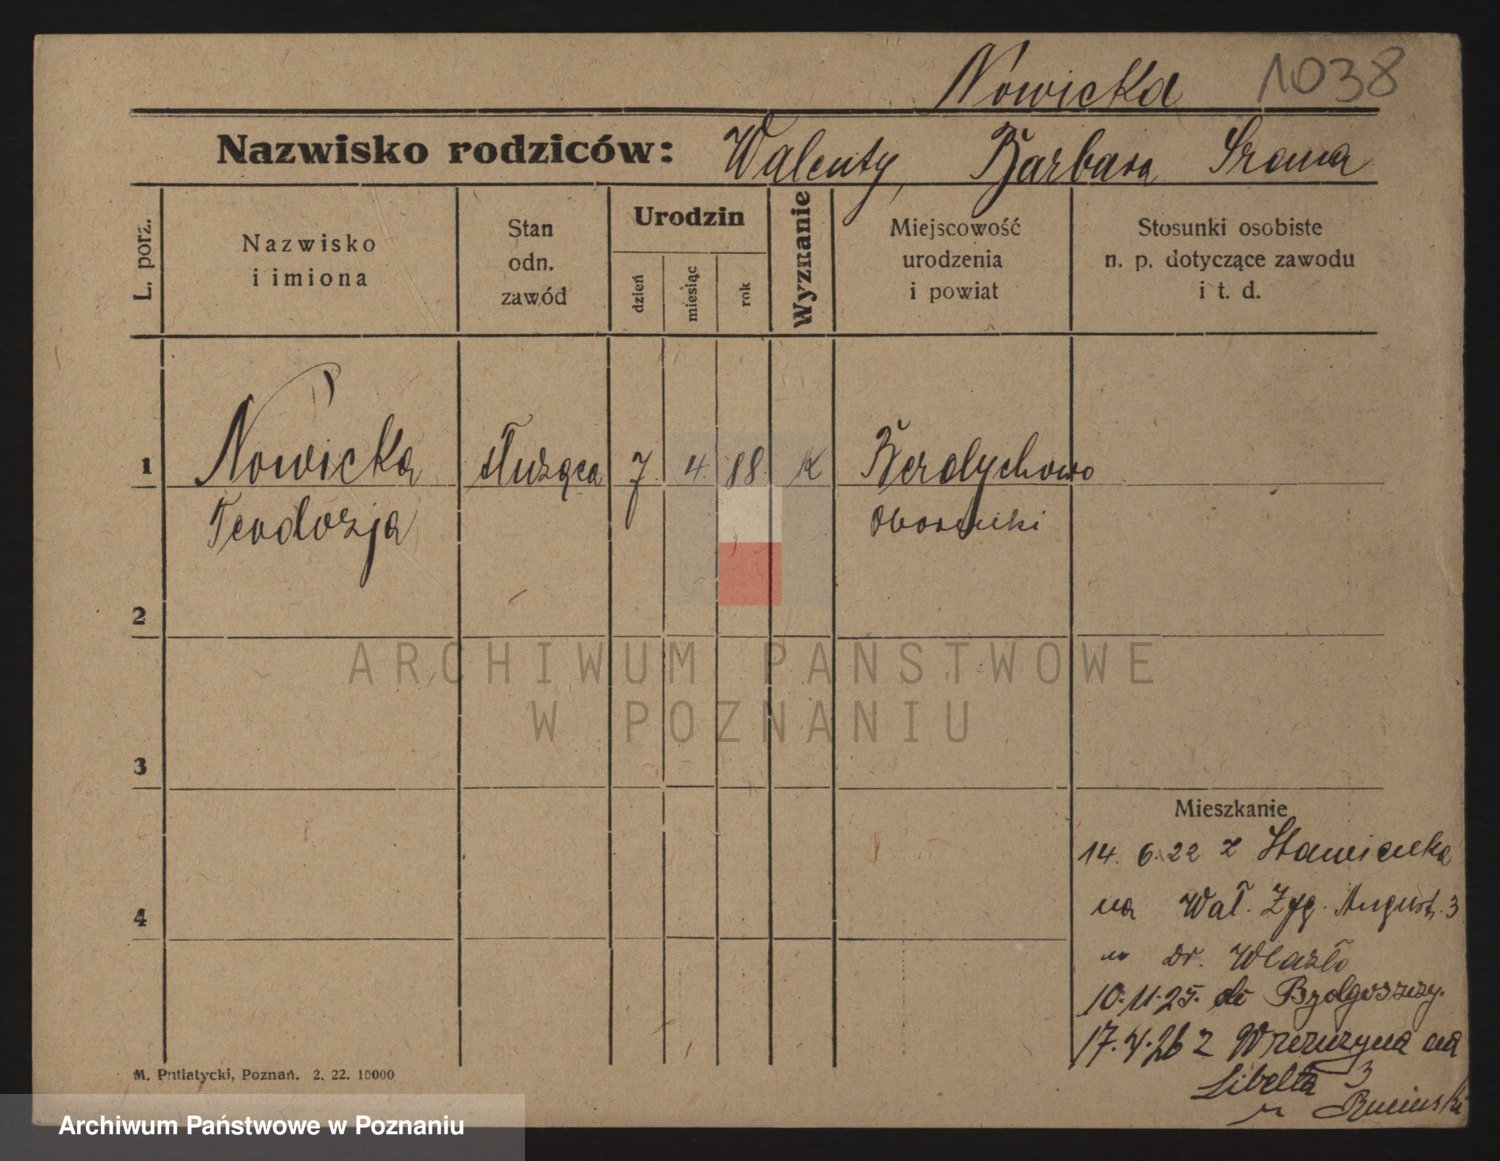 Nowicka 1038
Nazwisko rodziców: Walenty, Barbara
L. porz.
Nazwisko
i imiona
Stan
odn.
zawód
Urodzin
dzień
miesiąc
rok
Wyznanie
Miejscowość
urodzenia
i powiat
Stosunki osobiste
n. p. dotyczące zawodu
i t. d.
1 Nowicka służąca 7. 4. 88. K Berdychowo
Teodozja Oborniki
2
ARCHIWUM PAŃSTWOWE
W POZNANIU
3
Mieszkanie
14. 6. 22 z
4
na Wał. Zyg. August. 3
Dr.
10.11.25. do Bydgoszczy.
17. 26 z na
Libelta 3
M. Putiatycki, Poznań. 2. 22. 10000
Archiwum Państwowe w Poznaniu